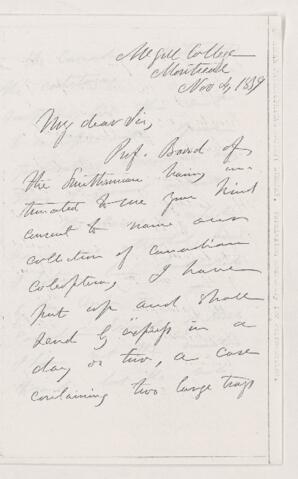 McGill College
Montreal
Nov 4, 1859
My dear Sir,
Prof. Baird of
the Smithsonian having in-
timated to me your kind
consent to name our
collection of Canadian
Coleoptera, I have
put up and shall
send by express in a
day or two, a case
containing two large trays